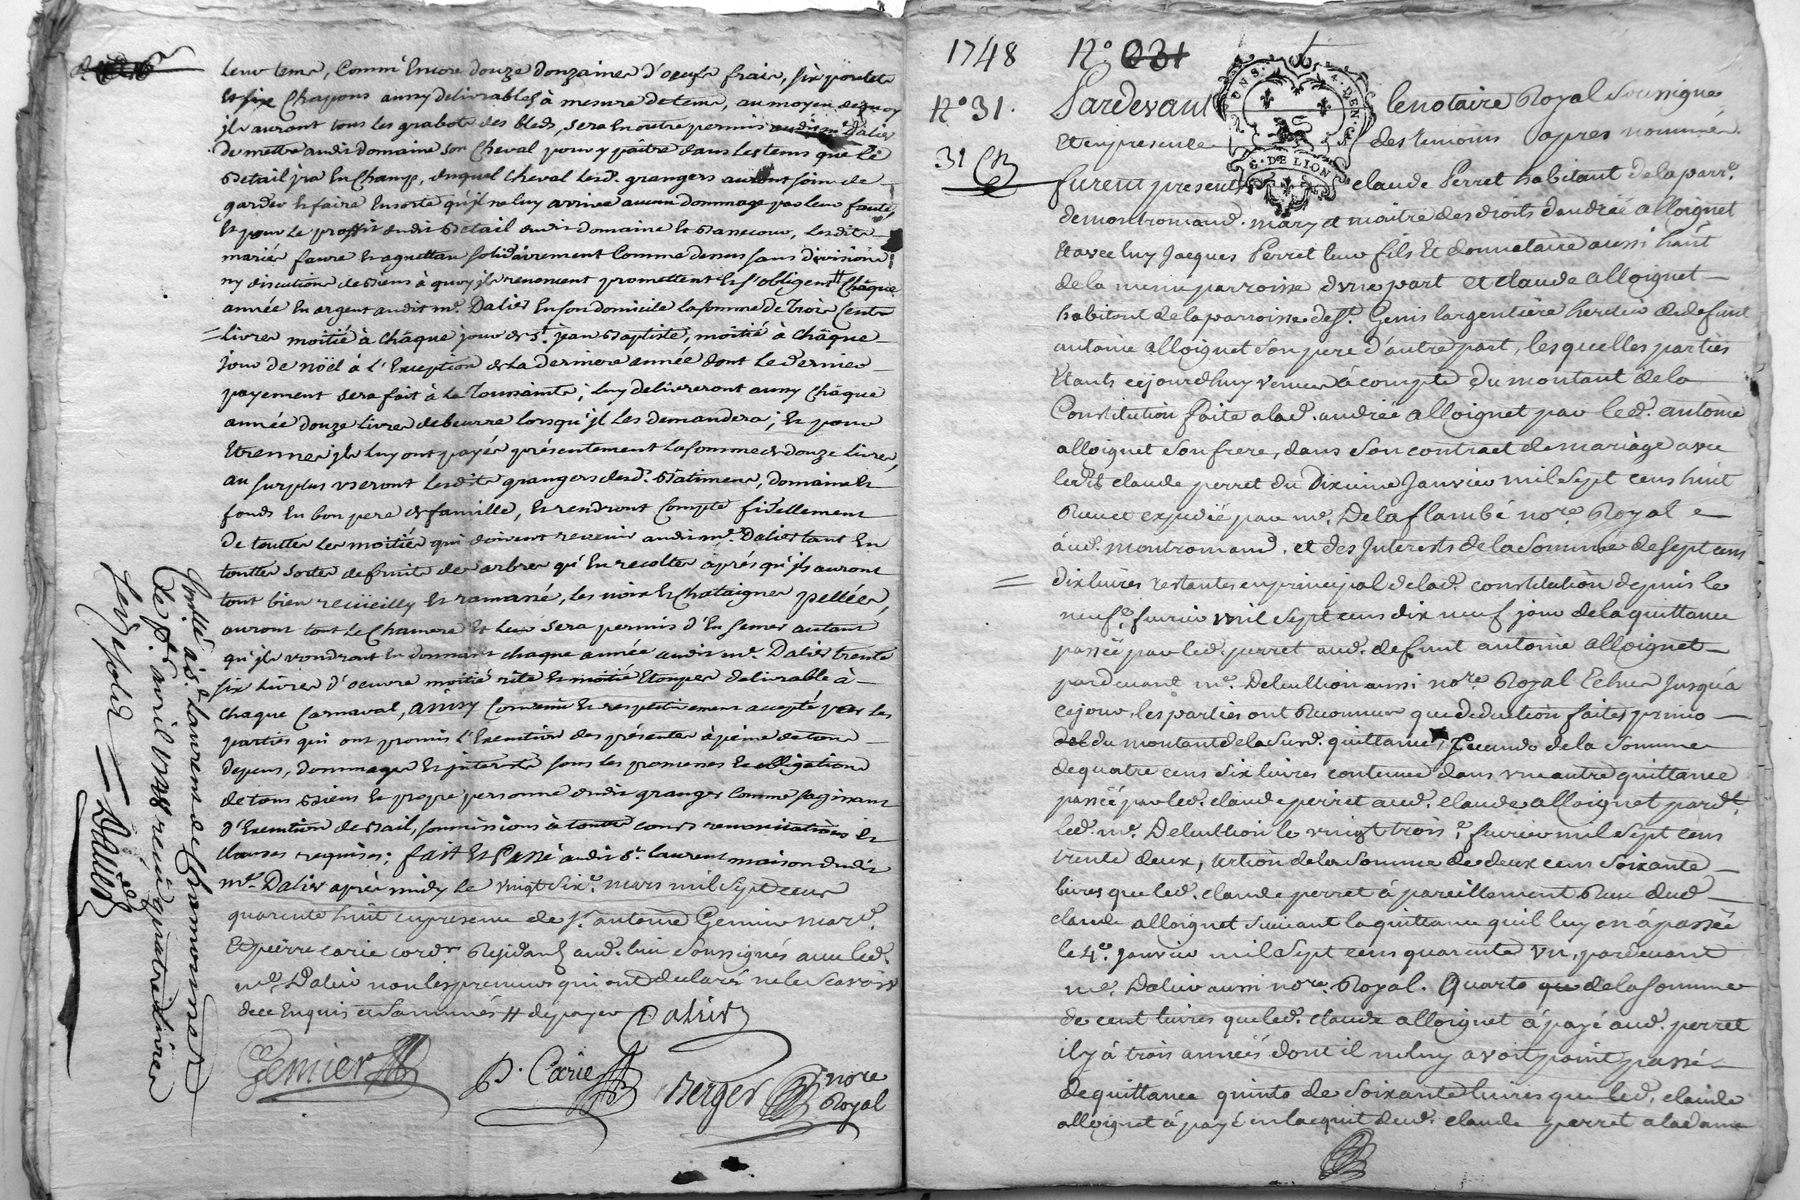 leur tems, Comm'Encore douze douzaines d'oeufs frais, six poulets
Et six Chapons aussy delivrables à mesure de tems, au moyen de quoy
ils auront tous les grabots des bleds, sera En outre permis audit mr. Dalier
de mettre audit domaine son Cheval pour y paître dans les tems que le
Bétail ira En Champ, duquel cheval lesd. grangers auront soin de
garder Et faire En sorte qu'il ne luy arrive aucun dommage par leur faute,
Et pour le proffit dudit Bétail dudit domaine Et Bassecour, lesdits
mariés faure Et aguettan solidairement Comme dessus sans division
ny discution de Biens à quoy ils renoncent promettent Et s'obligent # Châque
année En argent audit mr. Dalier En son domicile la somme de Trois Cents
Livres moitié à châque jour de St. jean Baptiste, moitié à châque
jour de nöel à l'Exception de La derniere année dont Le dernier
payement sera fait à la Toussaints; luy delivreront aussy châque
année douze Livres de beurre lorsqu'il Les demandera; Et pour
Etrennes ils luy ont payés présentement La somme de douze livres,
au surplus useront lesdits grangers desd. Bâtimens, domaine Et
fonds En bon pere de famille, Et rendront Compte fidellement
de toutes les moitiés qui doivent revenir audit mr. Dalier tant En
touttes sortes de fruits de arbres qu'En recoltes après qu'ils auront
tout bien recüeilly Et ramassé, les noix Et Chataignes pellées,
auront tout le Chanvre Et leur sera permis d'En semer autant
qu'ils voudront En donnant chaque année audit mr. Dalier trente
six Livres d'oeuvre moitié rite Et moitié Etoupes delivrable à
chaque Carnaval, ainsy Convenu Et respectivement accepté par les
parties qui ont promis l'Exemtion des présentes à peine de tous
depens, dommages Et interests sous les promesses Et obligations
de tous Biens Et propre personne dudit granger Comme s'agissant
d'Exemtion de Bail, soumissions à toutes cours renonciations Et
clauses requises; fait Et Passé audit St. laurent maison dudit
mr. Dalier après midy le vingt Six.e mars mil Sept cens
quarente huit en presence de sr. antoine Gemier mard.
Et pierre carie cordr. Residans aud. lieu Soussignés avec led.
mr. Dalier non les preneurs qui ont declarés ne le Scavoir
de ce Enquis et Sommés # de payer Dalier
Gemier P. Carie Berger nore Royal
Con.llé à St. Lourent de Chamousset
Le 8.e avril 1748 receu quatre livres
Le 13e Solz
Dalier
1748 N° 231
N° 31.
31
Pardevant le notaire Royal Soussigné
Et en presence des temoins apres nommés
furent presents claude Perret habitant de la parr.e
de montromand. mary et maitre des droits dandrée alloignet
Et avec luy Jacques Perret leur fils Et donnataire aussi habit
de la meme parroisse d'une part et claude alloignet
habitant de la parroisse de St. Genis largentière heritier de defunt
antoine alloignet Son pere d'autre part, lesquelles parties
Etants cejourdhuy venues à compte du montant de la
Constitution faite a lad. andrée alloignet par led. antoine
alloignet Son frere, dans Son contract de mariage avec
ledit claude perret du Dixieme Janvier mil Sept cens huit
Receu et expedié par me. Delaflambé nore. Royal
aud. montromand, et des Interests de la Somme de Sept cens
dix livres restantes en principal de lad. constitution depuis le
neuf.e fevrier mil Sept cens dix neuf jour de la quittance
passée par led. perret aud. defunt antoine alloignet
pardevant me. Delullion aussi nore. Royal Echus Jusqu'a
ce jour, les parties ont Reconnues que deduction faites primo
du montant de la Susd. quittance, Secundo de la Somme
de quatre cens Six livres contenue dans une autre quittance
passée par led. claude perret aud. claude alloignet pardt.
led. me. Delullion le vingt trois.e fevrier mil Sept cens
trente deux, tertio de la Somme de deux cens Soixante
livres que led. claude perret à pareillement Receu dud.
claude alloignet Suivant la quittance qu'il luy en à passée
le 4.e janvier mil Sept cens quarente un, pardevant
me. Dalier aussi nore. Royal. Quarto de la Somme
de cent livres que led. claude alloignet à payé aud. perret
il y à trois années dont il ne luy avoit point passé
de quittance quinto de Soixante livres que led. claude
alloignet à payé en lacquit dud. claude perret a la dame